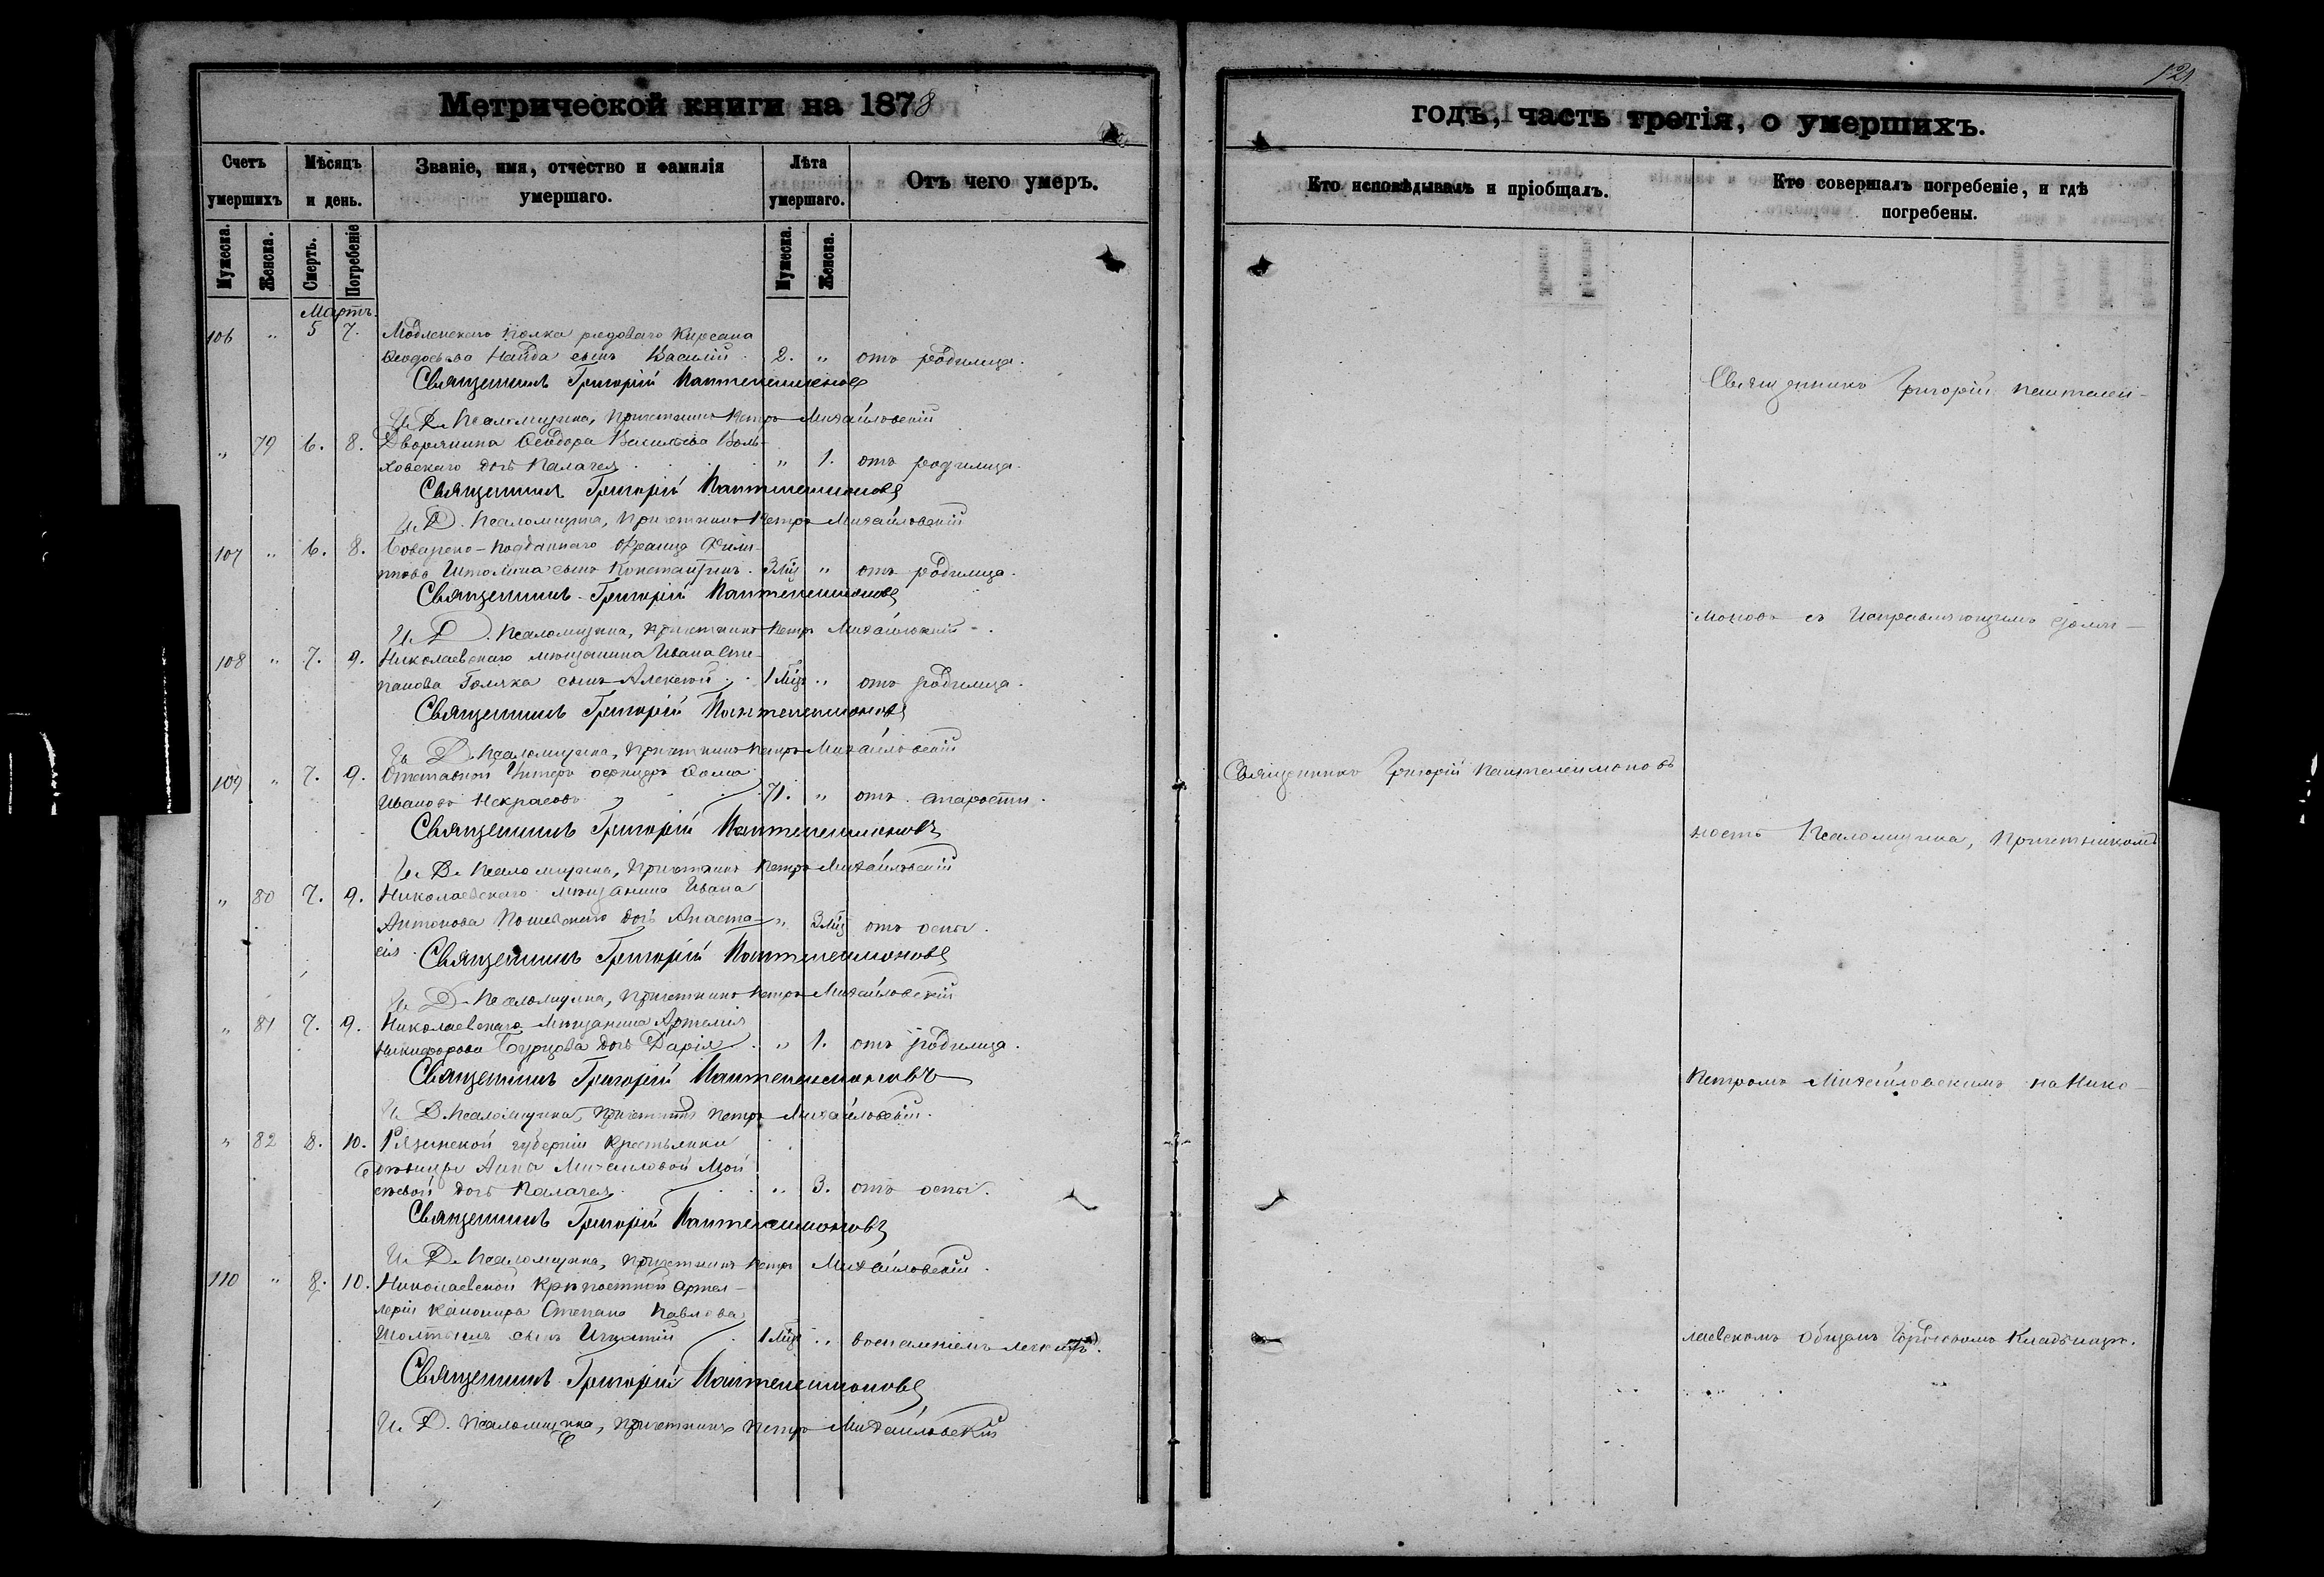 Метрической книги на 1878
Счетъ умершихъ
Мѣсяцъ и день.
Званіе, имя, отчество и фамилія умершаго.
Лѣта умершаго.
Отъ чего умеръ.
Мужеска.
Женска.
Смерть.
Погребеніе
Мужеска.
Женска.
Мартъ.
106 " 5 7. Модленскаго полка рядоваго Кирсана
Ѳеодосьева Найда сынъ Василій 2. " отъ родимца.
Священникъ Григорій Пантелеимоновъ
И. Д. Псаломщика, Причетникъ Петръ Михайловскій
" 79 6. 8. Дворянина Ѳеодора Васильева Воль-
ховскаго дочь Палагея " 1. отъ родимца.
Священникъ Григорій Пантелеимоновъ
И. Д. Псаломщика, Причетникъ Петръ Михайловскій
107 " 6. 8. Баварско-подданнаго Франца Фили-
ппова сынъ Константинъ. 3 Мц " отъ родимца.
Священникъ Григорій Пантелеимоновъ
И. Д. Псаломщика, Причетникъ Петръ Михайловскій
108 " 7. 9. Николаевскаго мѣщанина Ивана Сте-
панова Голяка сынъ Алексѣй 1 Мцъ " отъ родимца.
Священникъ Григорій Пантелеимоновъ
И. Д. Псаломщика, Причетникъ Петръ Михайловскій
109 " 7. 9. Отставной Унтеръ офицеръ Ѳома
Ивановъ Некрасовъ 71. " отъ старости.
Священникъ Григорій Пантелеимоновъ
И. Д. Псаломщика, Причетникъ Петръ Михайловскій
" 80 7. 9. Николаевскаго мѣщанина Ивана
Антонова дочь Анаста- " 3 Мц отъ оспы.
сія Священникъ Григорій Пантелеимоновъ
И. Д. Псаломщика, Причетникъ Петръ Михайловскій
" 81 7. 9. Николаевскаго Мѣщанина Артемія
Никифорова Бурцова дочь Дарія " 1. отъ родимца.
Священникъ Григорій Пантелеимоновъ
И. Д. Псаломщика, Причетникъ Петръ Михайловскій.
" 82 8. 10. Рязанской губерніи крестьянки
дѣвицы Анны Михаиловой Мои-
сѣевой дочь Палагея " 3. отъ оспы.
Священникъ Григорій Пантелеимоновъ
И. Д. Псаломщика, Причетникъ Петръ Михайловскій.
110 " 8. 10. Николаевской крѣпостной артил-
леріи канонира Степана Павлова
сынъ Игнатій 1 Мцъ " воспаленіемъ легкихъ.
Священникъ Григорій Пантелеимоновъ
И. Д. Псаломщика, Причетникъ Петръ Михайловскій
121
годъ, часть третія, о умершихъ.
Кто исповѣдывалъ и пріобщалъ.
Кто совершалъ погребеніе, и гдѣ погребены.
Священникъ Григорій Пантелеимоновъ
Священникъ Григорій Пантелеи-
моновъ съ Исправляющимъ долж-
ность Псаломщика, Причетникомъ
Петромъ Михайловскимъ на Нико-
лаевскомъ общемъ Городскомъ Кладбищѣ.